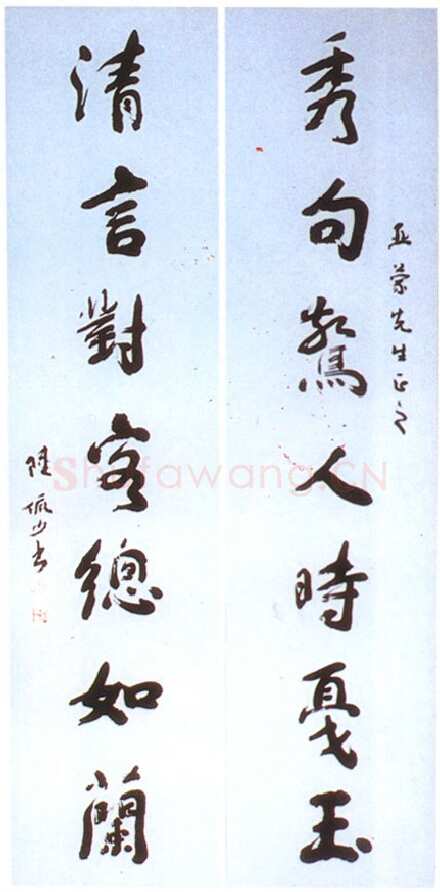 先生正之
秀句驚人時戛玉
清言對客總如蘭
陸
書
Shufawang.CN